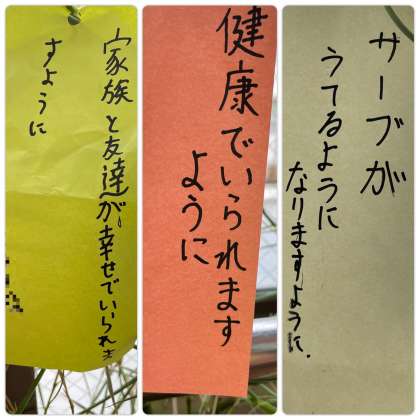 家族と友達が幸せでいられま
すように
健康でいられます
ように
サーブが
うてるように
なりますように.